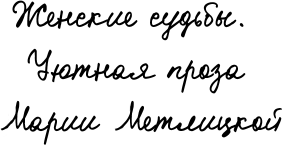 Женские судьбы.
Уютная проза
Марии Метлицкой